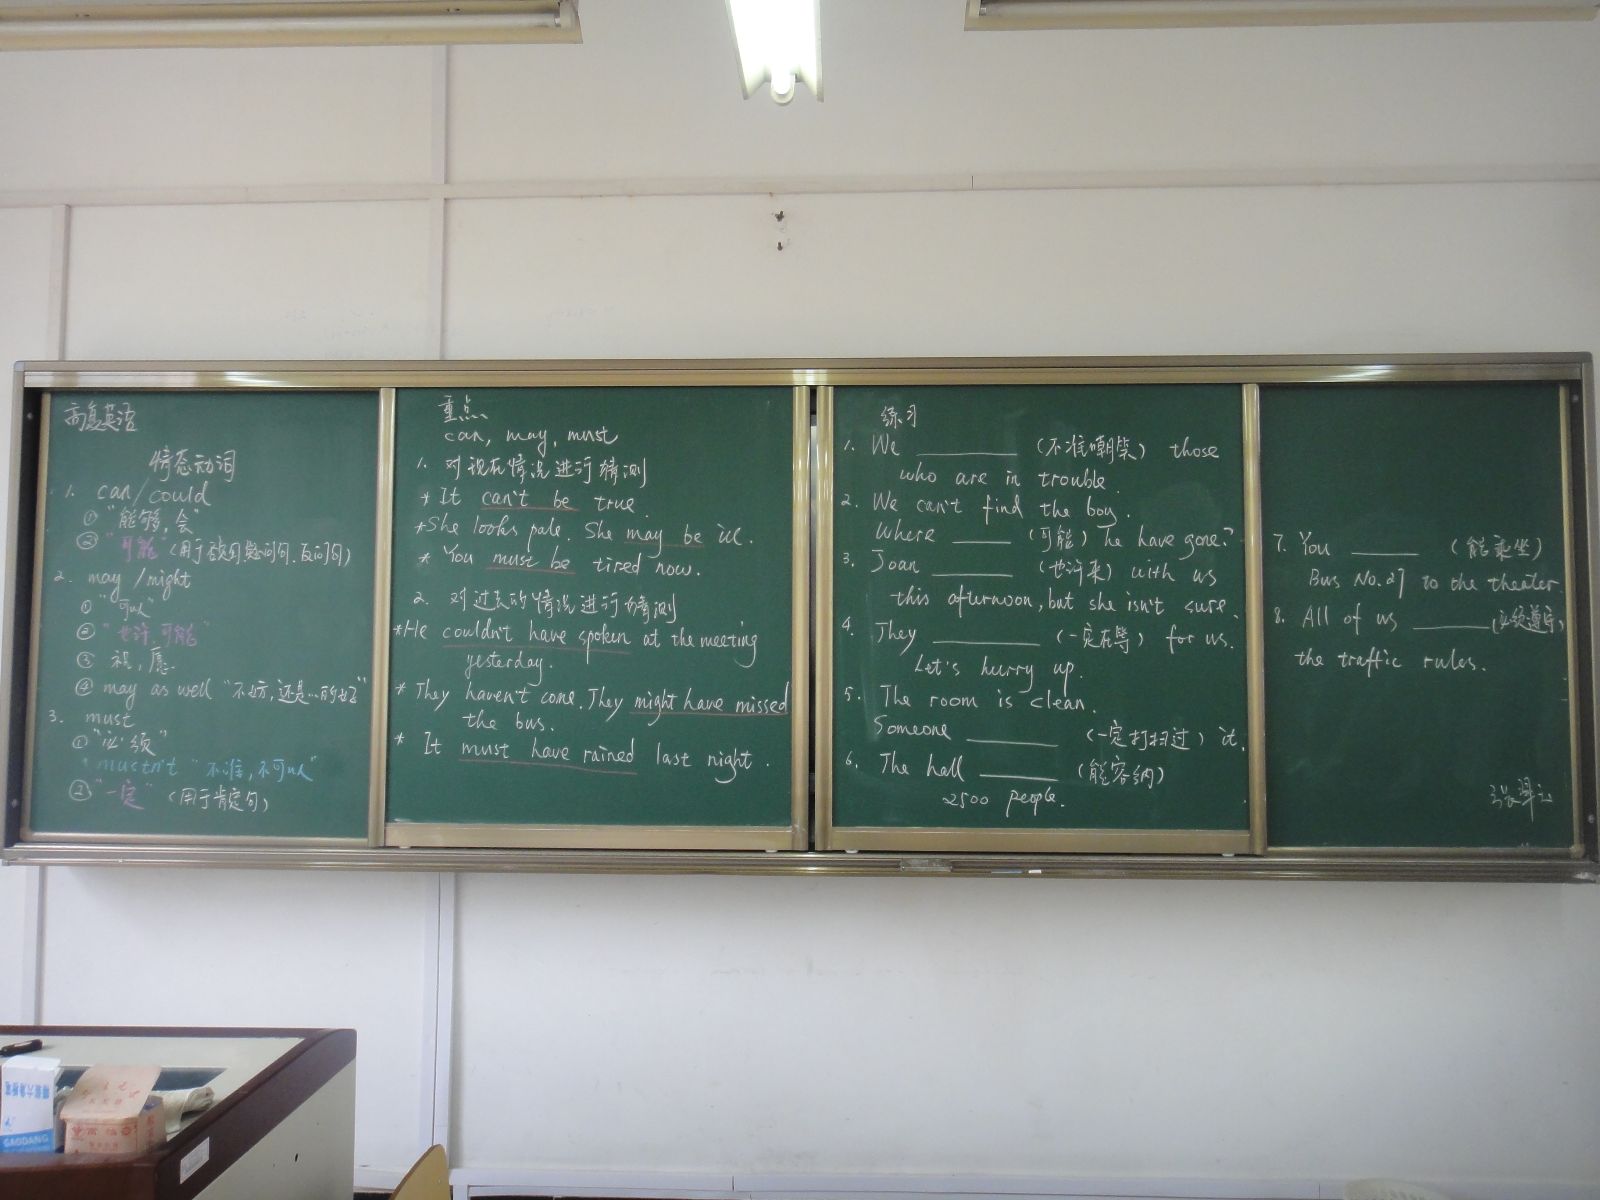 高复英语
情态动词
1. can/could
① "能够,会"
② "可能" (用于否定句,疑问句,反问句)
2. may/might
① "可以"
② "也许,可能"
③ 祝,愿
④ may as well "不妨,还是…的好"
3. must
① "必须"
"mustn't "不准,不可以"
② "一定" (用于肯定句)
重点
can, may, must
1. 对现在情况进行猜测
* It can't be true.
* She looks pale. She may be ill.
* You must be tired now.
2. 对过去的情况进行猜测
* He couldn't have spoken at the meeting
yesterday.
* They haven't come. They might have missed
the bus.
* It must have rained last night.
练习
1. We ________ (不准嘲笑) those
who are in trouble.
2. We can't find the boy.
Where ____ (可能) he have gone?
3. Joan ______ (也许来) with us
this afternoon, but she isn't sure.
4. They ________ (一定在等) for us.
Let's hurry up.
5. The room is clean.
Someone _______ (一定打扫过) it.
6. The hall ______ (能容纳)
2500 people.
7. You _____ (能乘坐)
Bus No.27 to the theater.
8. All of us ______ (必须遵守)
the traffic rules.
GAODANG